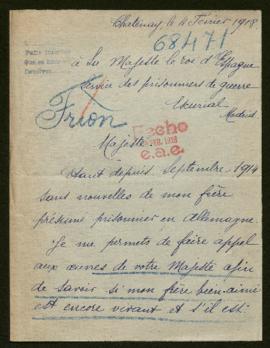 Chatenay, le 4 Février 1918
68471
à Sa Majesté le roi d'Espagne
Service des prisonniers de guerre
Escurial
Madrid
Frion
Hecho
e.a.e.
Majesté
Etant depuis Septembre 1914
sans nouvelles de mon frère
présumé prisonnier en Allemagne
Je me permets de faire appel
aux œuvres de votre Majesté afin
de savoir si mon frère bien-aimé
est encore vivant et s'il est